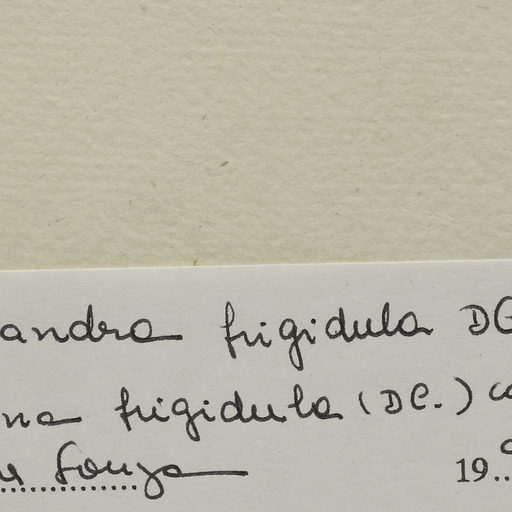 andra frigidula DC
na frigidula (DC.) Co
Souza 19..